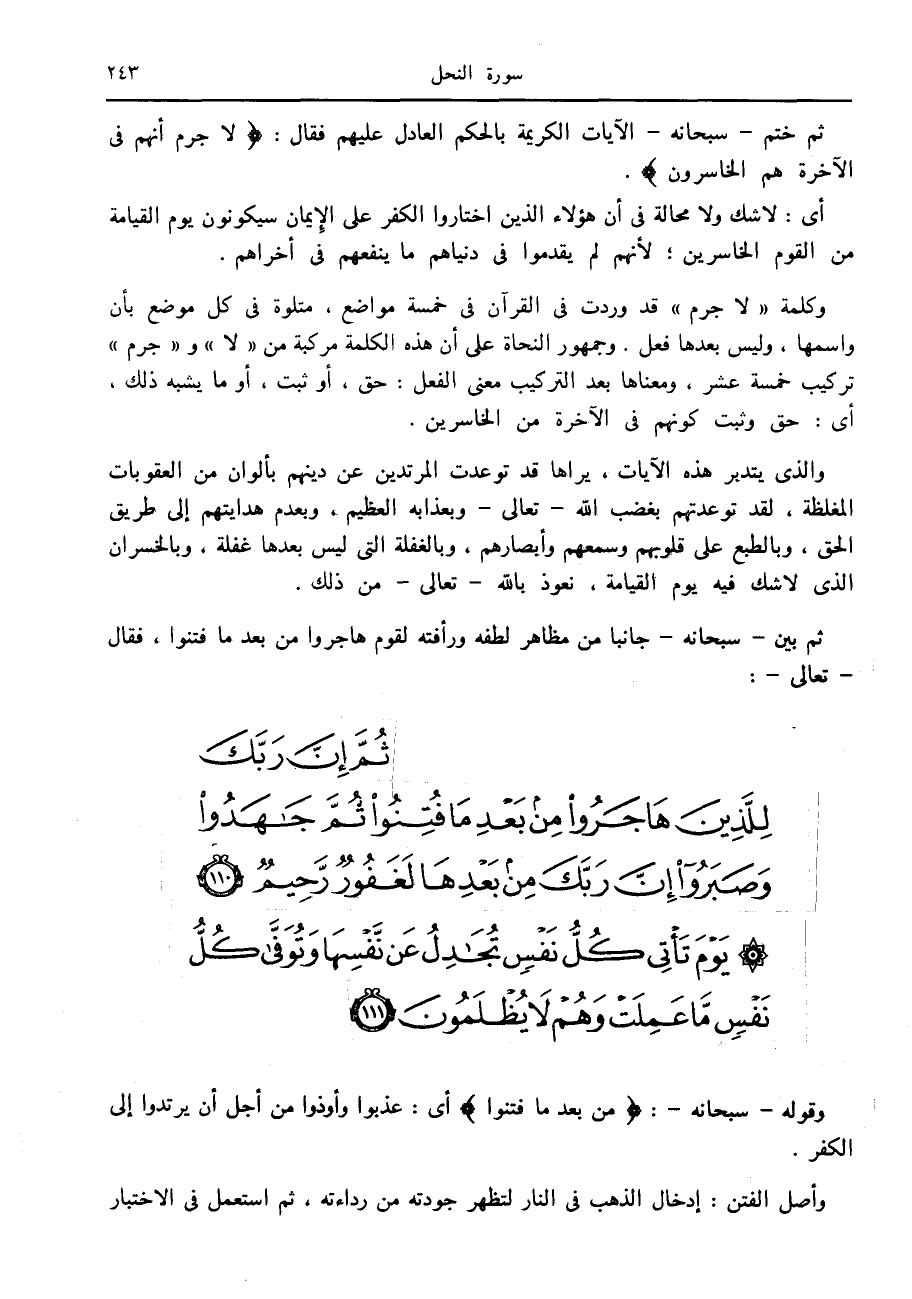 سورة النحل ٢٤٣
ثم ختم - سبحانه - الآيات الكريمة بالحكم العادل عليهم فقال : ﴿ لا جرم أنهم فى
الآخرة هم الخاسرون ﴾ .
أى : لاشك ولا محالة فى أن هؤلاء الذين اختاروا الكفر على الإيمان سيكونون يوم القيامة
من القوم الخاسرين ؛ لأنهم لم يقدموا فى دنياهم ما ينفعهم فى أخراهم .
وكلمة « لا جرم » قد وردت فى القرآن فى خمسة مواضع ، متلوة فى كل موضع بأن
واسمها ، وليس بعدها فعل . وجمهور النحاة على أن هذه الكلمة مركبة من « لا » و « جرم »
تركيب خمسة عشر ، ومعناها بعد التركيب معنى الفعل : حق ، أو ثبت ، أو ما يشبه ذلك ،
أى : حق وثبت كونهم فى الآخرة من الخاسرين .
والذى يتدبر هذه الآيات ، يراها قد توعدت المرتدين عن دينهم بألوان من العقوبات
المغلظة ، لقد توعدتهم بغضب الله - تعالى - وبعذابه العظيم ، وبعدم هدايتهم إلى طريق
الحق ، وبالطبع على قلوبهم وسمعهم وأبصارهم ، وبالغفلة التى ليس بعدها غفلة ، وبالخسران
الذى لاشك فيه يوم القيامة ، نعوذ بالله - تعالى - من ذلك .
ثم بين - سبحانه - جانبا من مظاهر لطفه ورأفته لقوم هاجروا من بعد ما فتنوا ، فقال
- تعالى - :
ثُمَّ إِنَّ رَبَّكَ
لِلَّذِينَ هَاجَرُواْ مِنۢ بَعۡدِ مَا فُتِنُواْ ثُمَّ جَٰهَدُواْ
وَصَبَرُوٓاْ إِنَّ رَبَّكَ مِنۢ بَعۡدِهَا لَغَفُورٞ رَّحِيمٞ ١١٠
۞ يَوۡمَ تَأۡتِى كُلُّ نَفۡسٖ تُجَٰدِلُ عَن نَّفۡسِهَا وَتُوَفَّىٰ كُلُّ
نَفۡسٖ مَّا عَمِلَتۡ وَهُمۡ لَا يُظۡلَمُونَ ١١١
وقوله - سبحانه - : ﴿ من بعد ما فتنوا ﴾ أى : عذبوا وأوذوا من أجل أن يرتدوا إلى
الكفر .
وأصل الفتن : إدخال الذهب فى النار لتظهر جودته من رداءته ، ثم استعمل فى الاختبار